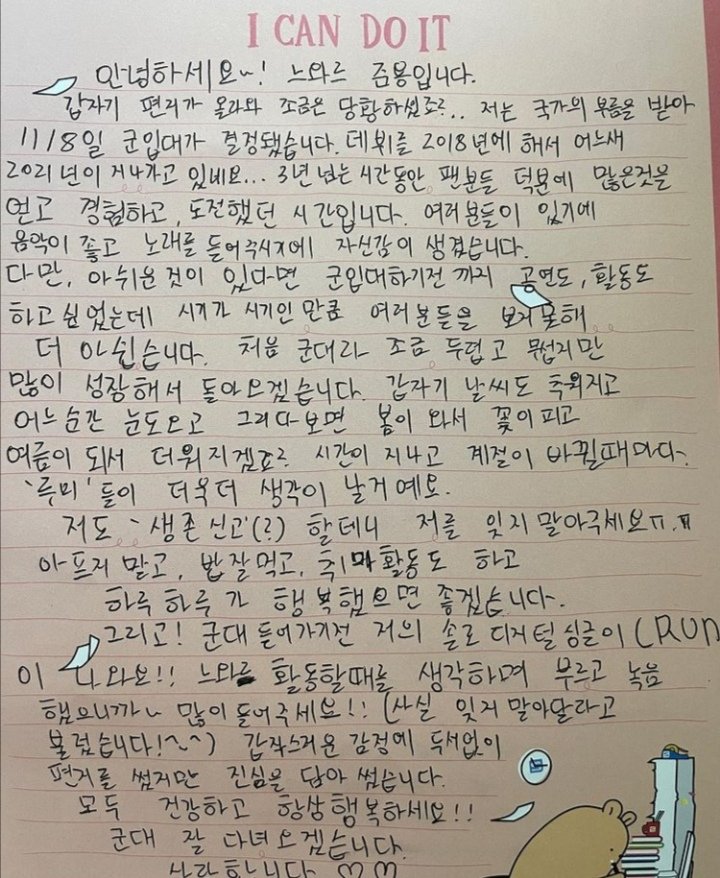 I CAN DO IT
안녕하세요~! 느와르 준용입니다.
갑자기 편지가 올라와 조금은 당황하셨죠?.. 저는 국가의 부름을 받아
11/8일 군입대가 결정됐습니다. 데뷔를 2018년에 해서 어느새
2021년이 지나가고 있네요... 3년 넘는 시간동안 팬분들 덕분에 많은것을
얻고 경험하고, 도전했던 시간입니다. 여러분들이 있기에
음악이 좋고 노래를 들어주시기에 자신감이 생겼습니다.
다만, 아쉬운 것이 있다면 군입대하기전 까지 공연도, 활동도
하고 싶었는데 시기가 시기인 만큼 여러분들을 보지못해
더 아쉽습니다. 처음 군대라 조금 두렵고 무섭지만
많이 성장해서 돌아오겠습니다. 갑자기 날씨도 추워지고
어느순간 눈도오고 그러다보면 봄이 와서 꽃이피고
여름이 되서 더워지겠죠? 시간이 지나고 계절이 바뀔때마다
'루미'들이 더욱더 생각이 날거예요.
저도 '생존신고'(?) 할테니 저를 잊지 말아주세요ㅠ.ㅠ
아프지 말고, 밥 잘먹고, 취미활동도 하고
하루하루가 행복했으면 좋겠습니다.
그리고! 군대 들어가기전 저의 솔로 디지털 싱글이 (RUN
이 나와요!! 느와르 활동할때를 생각하며 부르고 녹음
했으니까~ 많이 들어주세요!! (사실 잊지 말아달라고
불렀습니다!^~^) 갑작스러운 감정에 두서없이
편지를 썼지만 진심을 담아 썼습니다.
모두 건강하고 항상행복하세요!!
군대 잘 다녀오겠습니다.
사랑합니다 ♡♡